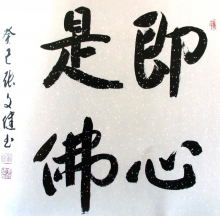 即心
是佛
癸巳張文健书